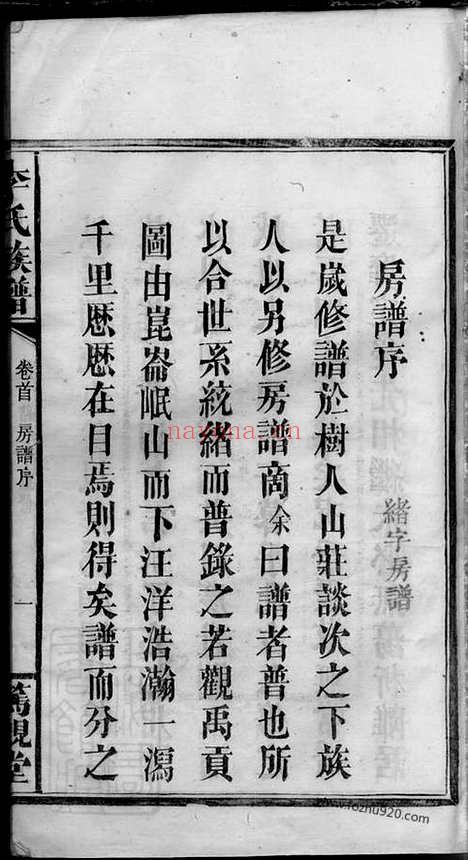 房譜序
緒字房譜
是歲修譜於樹人山莊談次之下族
人以另修房譜商余曰譜者普也所
以合世系統緒而普錄之若觀禹貢
圖由崑崙岷山而下汪洋浩瀚一瀉
千里歷歷在目焉則得矣譜而分之
李氏族譜
卷首
房譜序
一
篤親堂
nayona.cn
www.fozhu920.com